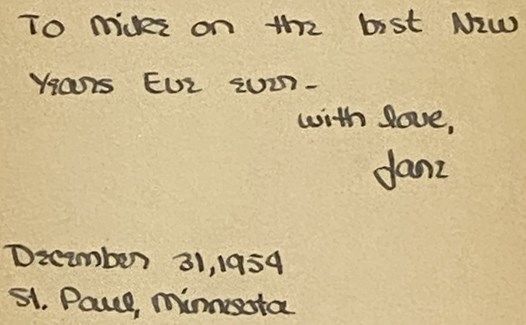 To Mike on the best New
Years Eve ever-
with love,
Jane
December 31, 1954
St. Paul, Minnesota